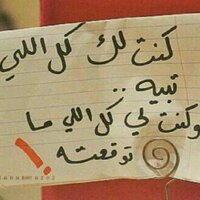 كنت لك كل اللي
تبيه ..
وكنت لي كل اللي ما
توقعته